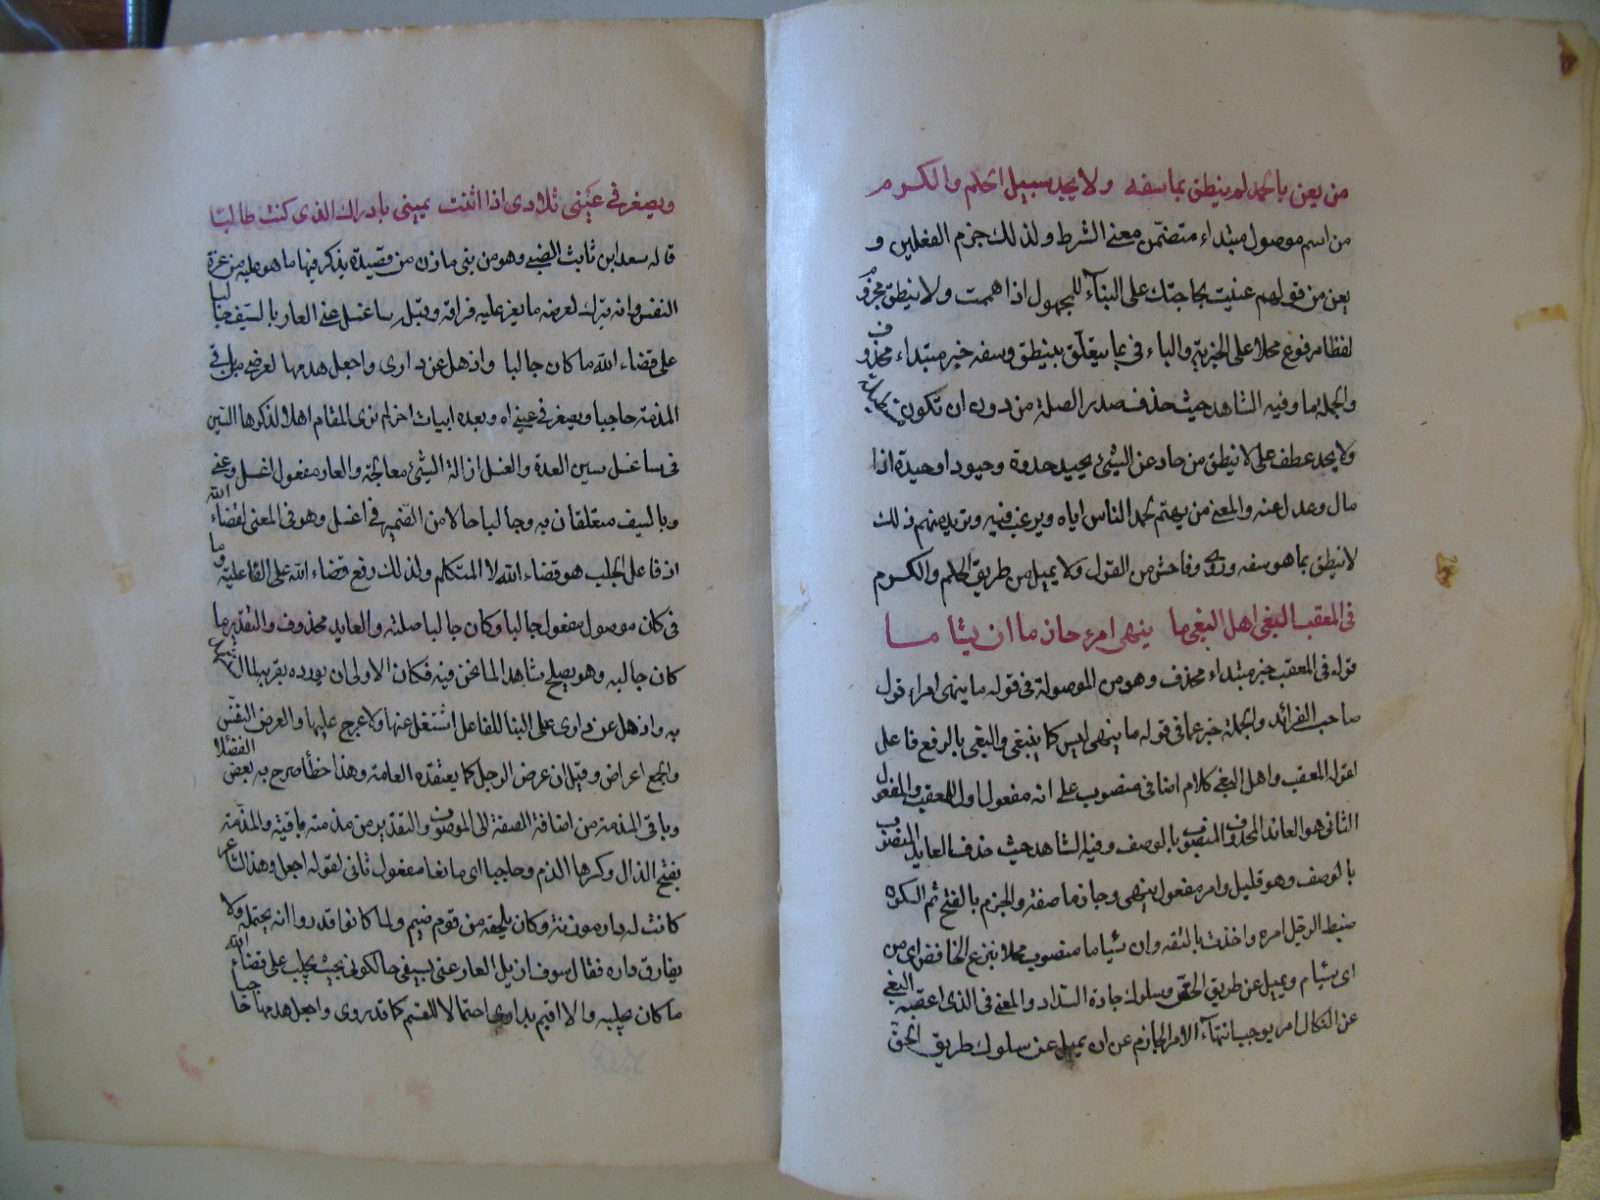 من يعن بالحمد لم ينطق بما سفه ولا يحد سبيل الحلم والكرم
من اسم موصول مبتداء متضمن معنى الشرط ولذلك جزم الفعلين و
يعن من قولهم عنيت بحاجتك على البناء للمجهول اذا هممت ولا ينطق مجزوم
لفظا مرفوع محلا على الخبرية والباء في بما يتعلق بينطق وسفه خبر مبتداء محذوف
والجملة بما وفيه الشاهد حيث حذف صدر الصلة من دون ان تكون
ولا يحد عطف على لا ينطق من حاد عن الشيء يحيد حدوة وحيودا وحيدة اذا
مال وعدل عنه والمعنى من يهتم بحمد الناس اياه ويرغب فيه ويريد منهم ذلك
لا ينطق بما هو سفه وفاحش من القول ولا يميل من طريق الحلم والكرم
في المعقب البغي اهل البغي ما ينهى امرء حازما ان يشاما
قوله في المعقب خبر مبتداء محذف وهو من الموصولة في قوله ما ينهى امراء قول
صاحب الفرائد والجملة خبر عما في قوله ما ينهى ليس كما ينبغي والبغي بالرفع فاعل
لقوله المعقب واهل البغي كلام اضافي منصوب على انه مفعول اول للمعقب والمفعول
الثاني هو العائد المحذوف المنصوب بالوصف وفيه الشاهد حيث حذف العايد المنصوب
بالوصف وهو قليل وامر مفعول ينهى وحازما صفته والحزم بالفتح ثم السكون
ضبط الرجل امره واخذت بالثقه وان يشاما منصوب محلا بنزع الخافض اى من
اى يشام ويميل عن طريق الحق وسلوك جادة السداد والمعنى في الذى اعقبه البغي
عن النكال امر يوجب انتهاء الامر الحازم عن ان يميل عن سلوك طريق الحق
ويصغر في عيني تلادى اذا انثنت يميني بادراك الذى كنت طالبا
قاله سعد ابن ثابت الضبي وهو من بنى مازن من قصيدة يذكر فيها ما هو عليه من عزة
النفس وانه يترك لعرضه ما يعز عليه فراقه وقبله ساغسل عني العار بالسيف جالبا
على قضاء الله ما كان جالبا واذهل عن دارى واجعل هدمها لعرضي من باقى
المذمة حاجبا ويصغر في عيني اه وبعده ابيات اخر لم نرى المقام اهلا لذكرها السين
في ساغسل سين العدة والغسل ازالة الشيء معالجة والعار مفعول اغسل وعني
وبالسيف متعلقان به وجالبا حالا من الضمير في اغسل وهو في المعنى لقضاء الله
اذ فاعل الجلب هو قضاء الله لا المتكلم ولذلك رفع قضاء الله على الفاعلية وما
في كان موصول مفعول جالبا وكان جالبا صلته والعايد محذوف والتقدير ما
كان جالبه وهو يصلح شاهدا لما نحن فيه فكان الاولى ان يورده بقرب
به واذهل عن دارى على البنا للفاعل اشتغل عنها ولا عرج عليها والعرض النفس
والجمع اعراض وقيل ان عرض الرجل كما يعتقده العامة وهذا خطأ صرح به بعض الفضلا
وباقى المذمة من اضافة الصفة الى الموصوف والتقدير من مذمته باقية والمذمة
بفتح الذال وكسرها الذم وحاجبا اى مانعا مفعول ثانى لقوله اجعل وهذا الشاعر
كانت له دار مونقة وكان يلحقه من قوم ضيم ولما كانوا قدروا انه يحتمله ولا
يفارق داره فقال سوف ازيل العار عنى بسيفى حالكونى بحيث يجلب على قضاء الله
ما كان جلبه والا اقيم بدارى احتمالا للضيم كما قدروى واجعل هدمها حا جبا